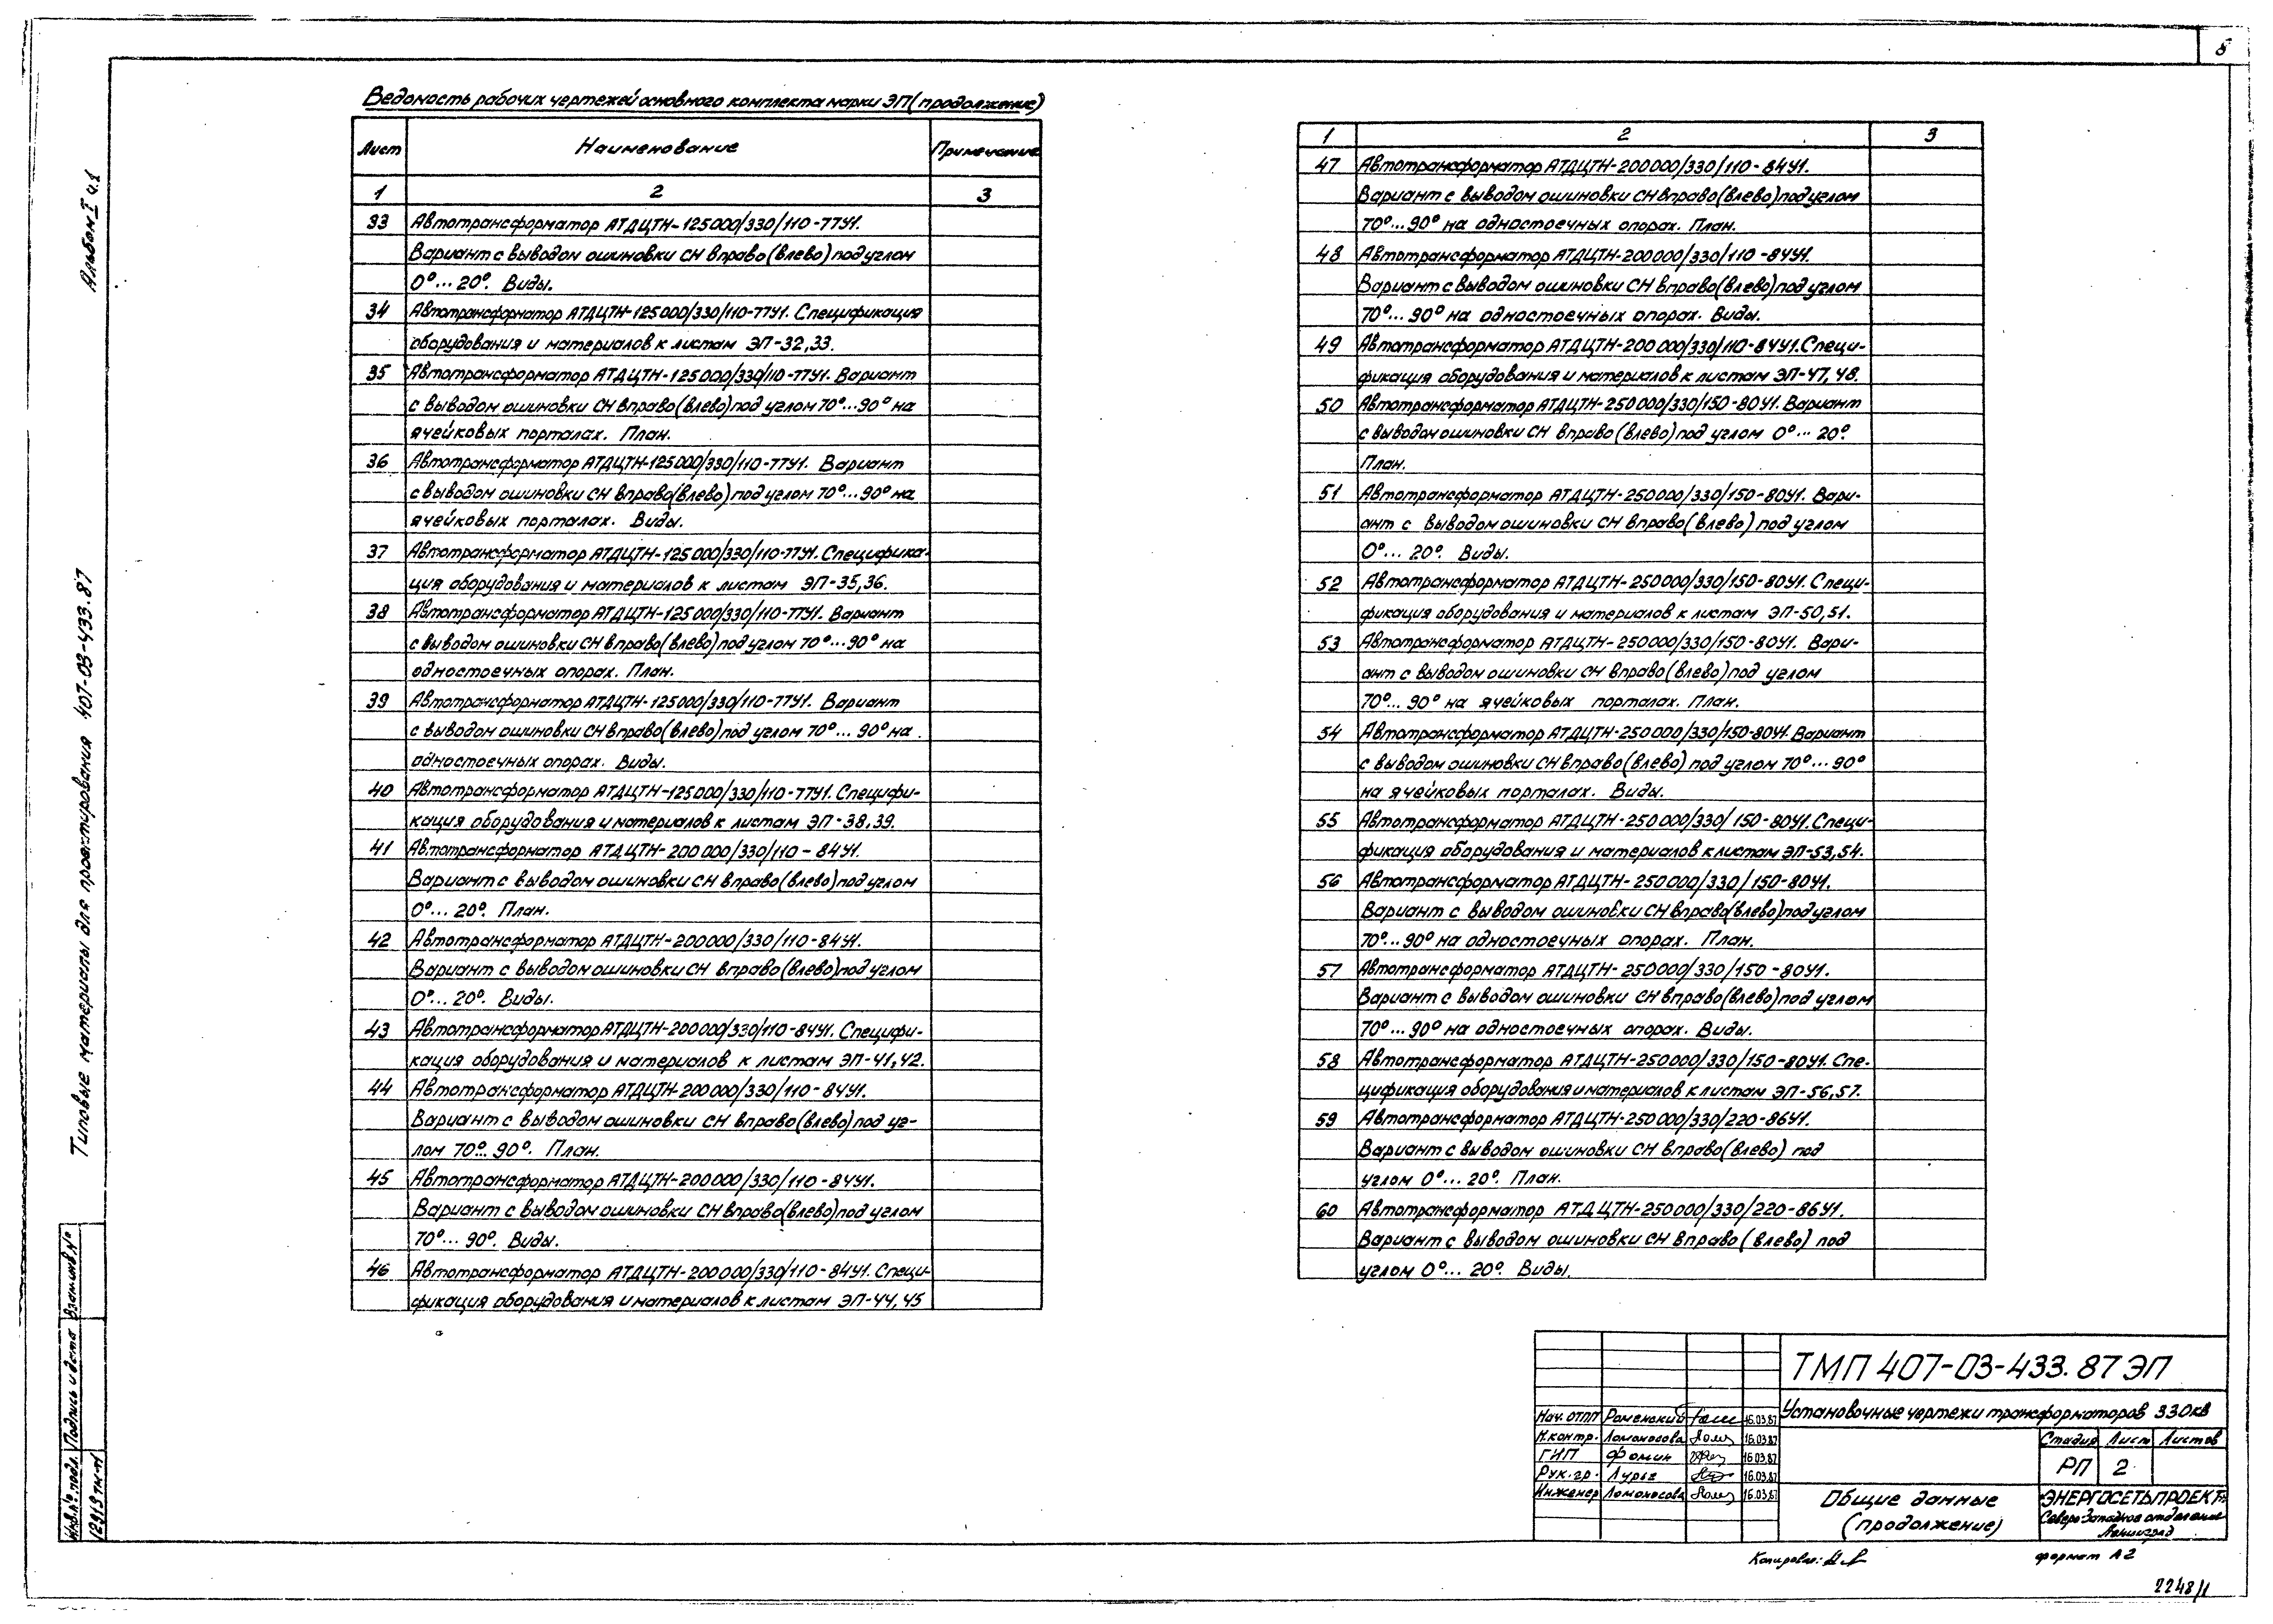 5
Альбом I ч.1
Типовые материалы для проектирования 407-03-433.87
Ведомость рабочих чертежей основного комплекта марки ЭП (продолжение)
Лист Наименование Примечание
1 2 3
33 Автотрансформатор АТДЦТН-125000/330/110-77У1.
Вариант с выводом ошиновки СН вправо (влево) под углом
0°... 20°. Виды.
34 Автотрансформатор АТДЦТН-125000/330/110-77У1. Спецификация
оборудования и материалов к листам ЭП-32,33.
35 Автотрансформатор АТДЦТН-125000/330/110-77У1. Вариант
с выводом ошиновки СН вправо (влево) под углом 70°...90° на
ячейковых порталах. План.
36 Автотрансформатор АТДЦТН-125000/330/110-77У1. Вариант
с выводом ошиновки СН вправо (влево) под углом 70°...90° на
ячейковых порталах. Виды.
37 Автотрансформатор АТДЦТН-125000/330/110-77У1. Специфика-
ция оборудования и материалов к листам ЭП-35,36.
38 Автотрансформатор АТДЦТН-125000/330/110-77У1. Вариант
с выводом ошиновки СН вправо (влево) под углом 70°...90° на
одностоечных опорах. План.
39 Автотрансформатор АТДЦТН-125000/330/110-77У1. Вариант
с выводом ошиновки СН вправо (влево) под углом 70°... 90° на
одностоечных опорах. Виды.
40 Автотрансформатор АТДЦТН-125000/330/110-77У1. Специфи-
кация оборудования и материалов к листам ЭП-38,39.
41 Автотрансформатор АТДЦТН-200000/330/110-84У1.
Вариант с выводом ошиновки СН вправо (влево) под углом
0°... 20°. План.
42 Автотрансформатор АТДЦТН-200000/330/110-84У1.
Вариант с выводом ошиновки СН вправо (влево) под углом
0°... 20°. Виды.
43 Автотрансформатор АТДЦТН-200000/330/110-84У1. Специфи-
кация оборудования и материалов к листам ЭП-41,42.
44 Автотрансформатор АТДЦТН-200000/330/110-84У1.
Вариант с выводом ошиновки СН вправо (влево) под уг-
лом 70°... 90°. План.
45 Автотрансформатор АТДЦТН-200000/330/110-84У1.
Вариант с выводом ошиновки СН вправо (влево) под углом
70°... 90°. Виды.
46 Автотрансформатор АТДЦТН-200000/330/110-84У1. Специ-
фикация оборудования и материалов к листам ЭП-44,45
1 2 3
47 Автотрансформатор АТДЦТН-200000/330/110-84У1.
Вариант с выводом ошиновки СН вправо (влево) под углом
70°...90° на одностоечных опорах. План.
48 Автотрансформатор АТДЦТН-200000/330/110-84У1.
Вариант с выводом ошиновки СН вправо (влево) под углом
70°...90° на одностоечных опорах. Виды.
49 Автотрансформатор АТДЦТН-200000/330/110-84У1. Специ-
фикация оборудования и материалов к листам ЭП-47,48.
50 Автотрансформатор АТДЦТН-250000/330/150-80У1. Вариант
с выводом ошиновки СН вправо (влево) под углом 0°... 20°.
План.
51 Автотрансформатор АТДЦТН-250000/330/150-80У1. Вари-
ант с выводом ошиновки СН вправо (влево) под углом
0°... 20°. Виды.
52 Автотрансформатор АТДЦТН-250000/330/150-80У1. Специ-
фикация оборудования и материалов к листам ЭП-50,51.
53 Автотрансформатор АТДЦТН-250000/330/150-80У1. Вари-
ант с выводом ошиновки СН вправо (влево) под углом
70°... 90° на ячейковых порталах. План.
54 Автотрансформатор АТДЦТН-250000/330/150-80У1. Вариант
с выводом ошиновки СН вправо (влево) под углом 70°...90°
на ячейковых порталах. Виды.
55 Автотрансформатор АТДЦТН-250000/330/150-80У1. Специ-
фикация оборудования и материалов к листам ЭП-53,54.
56 Автотрансформатор АТДЦТН-250000/330/150-80У1.
Вариант с выводом ошиновки СН вправо (влево) под углом
70°...90° на одностоечных опорах. План.
57 Автотрансформатор АТДЦТН-250000/330/150-80У1.
Вариант с выводом ошиновки СН вправо (влево) под углом
70°...90° на одностоечных опорах. Виды.
58 Автотрансформатор АТДЦТН-250000/330/150-80У1. Спе-
цификация оборудования и материалов к листам ЭП-56,57.
59 Автотрансформатор АТДЦТН-250000/330/220-86У1.
Вариант с выводом ошиновки СН вправо (влево) под
углом 0°... 20°. План.
60 Автотрансформатор АТДЦТН-250000/330/220-86У1.
Вариант с выводом ошиновки СН вправо (влево) под
углом 0°... 20°. Виды.
Взам.инв.№
Подпись и дата
Инв.№ подл.
12919тм-т1
ТМП 407-03-433.87 ЭП
Установочные чертежи трансформаторов 330кв
Нач. ОТПП Роменский 16.03.87
Н.контр. Ломоносова 16.03.87
ГИП Фомин 16.03.87
Рук.гр. Лурье 16.03.87
Инженер Ломоносова 16.03.87
Стадия Лист Листов
РП 2
Общие данные
(продолжение)
"ЭНЕРГОСЕТЬПРОЕКТ"
Северо Западное отделение
Ленинград
Копировал:
формат А2
2248/1